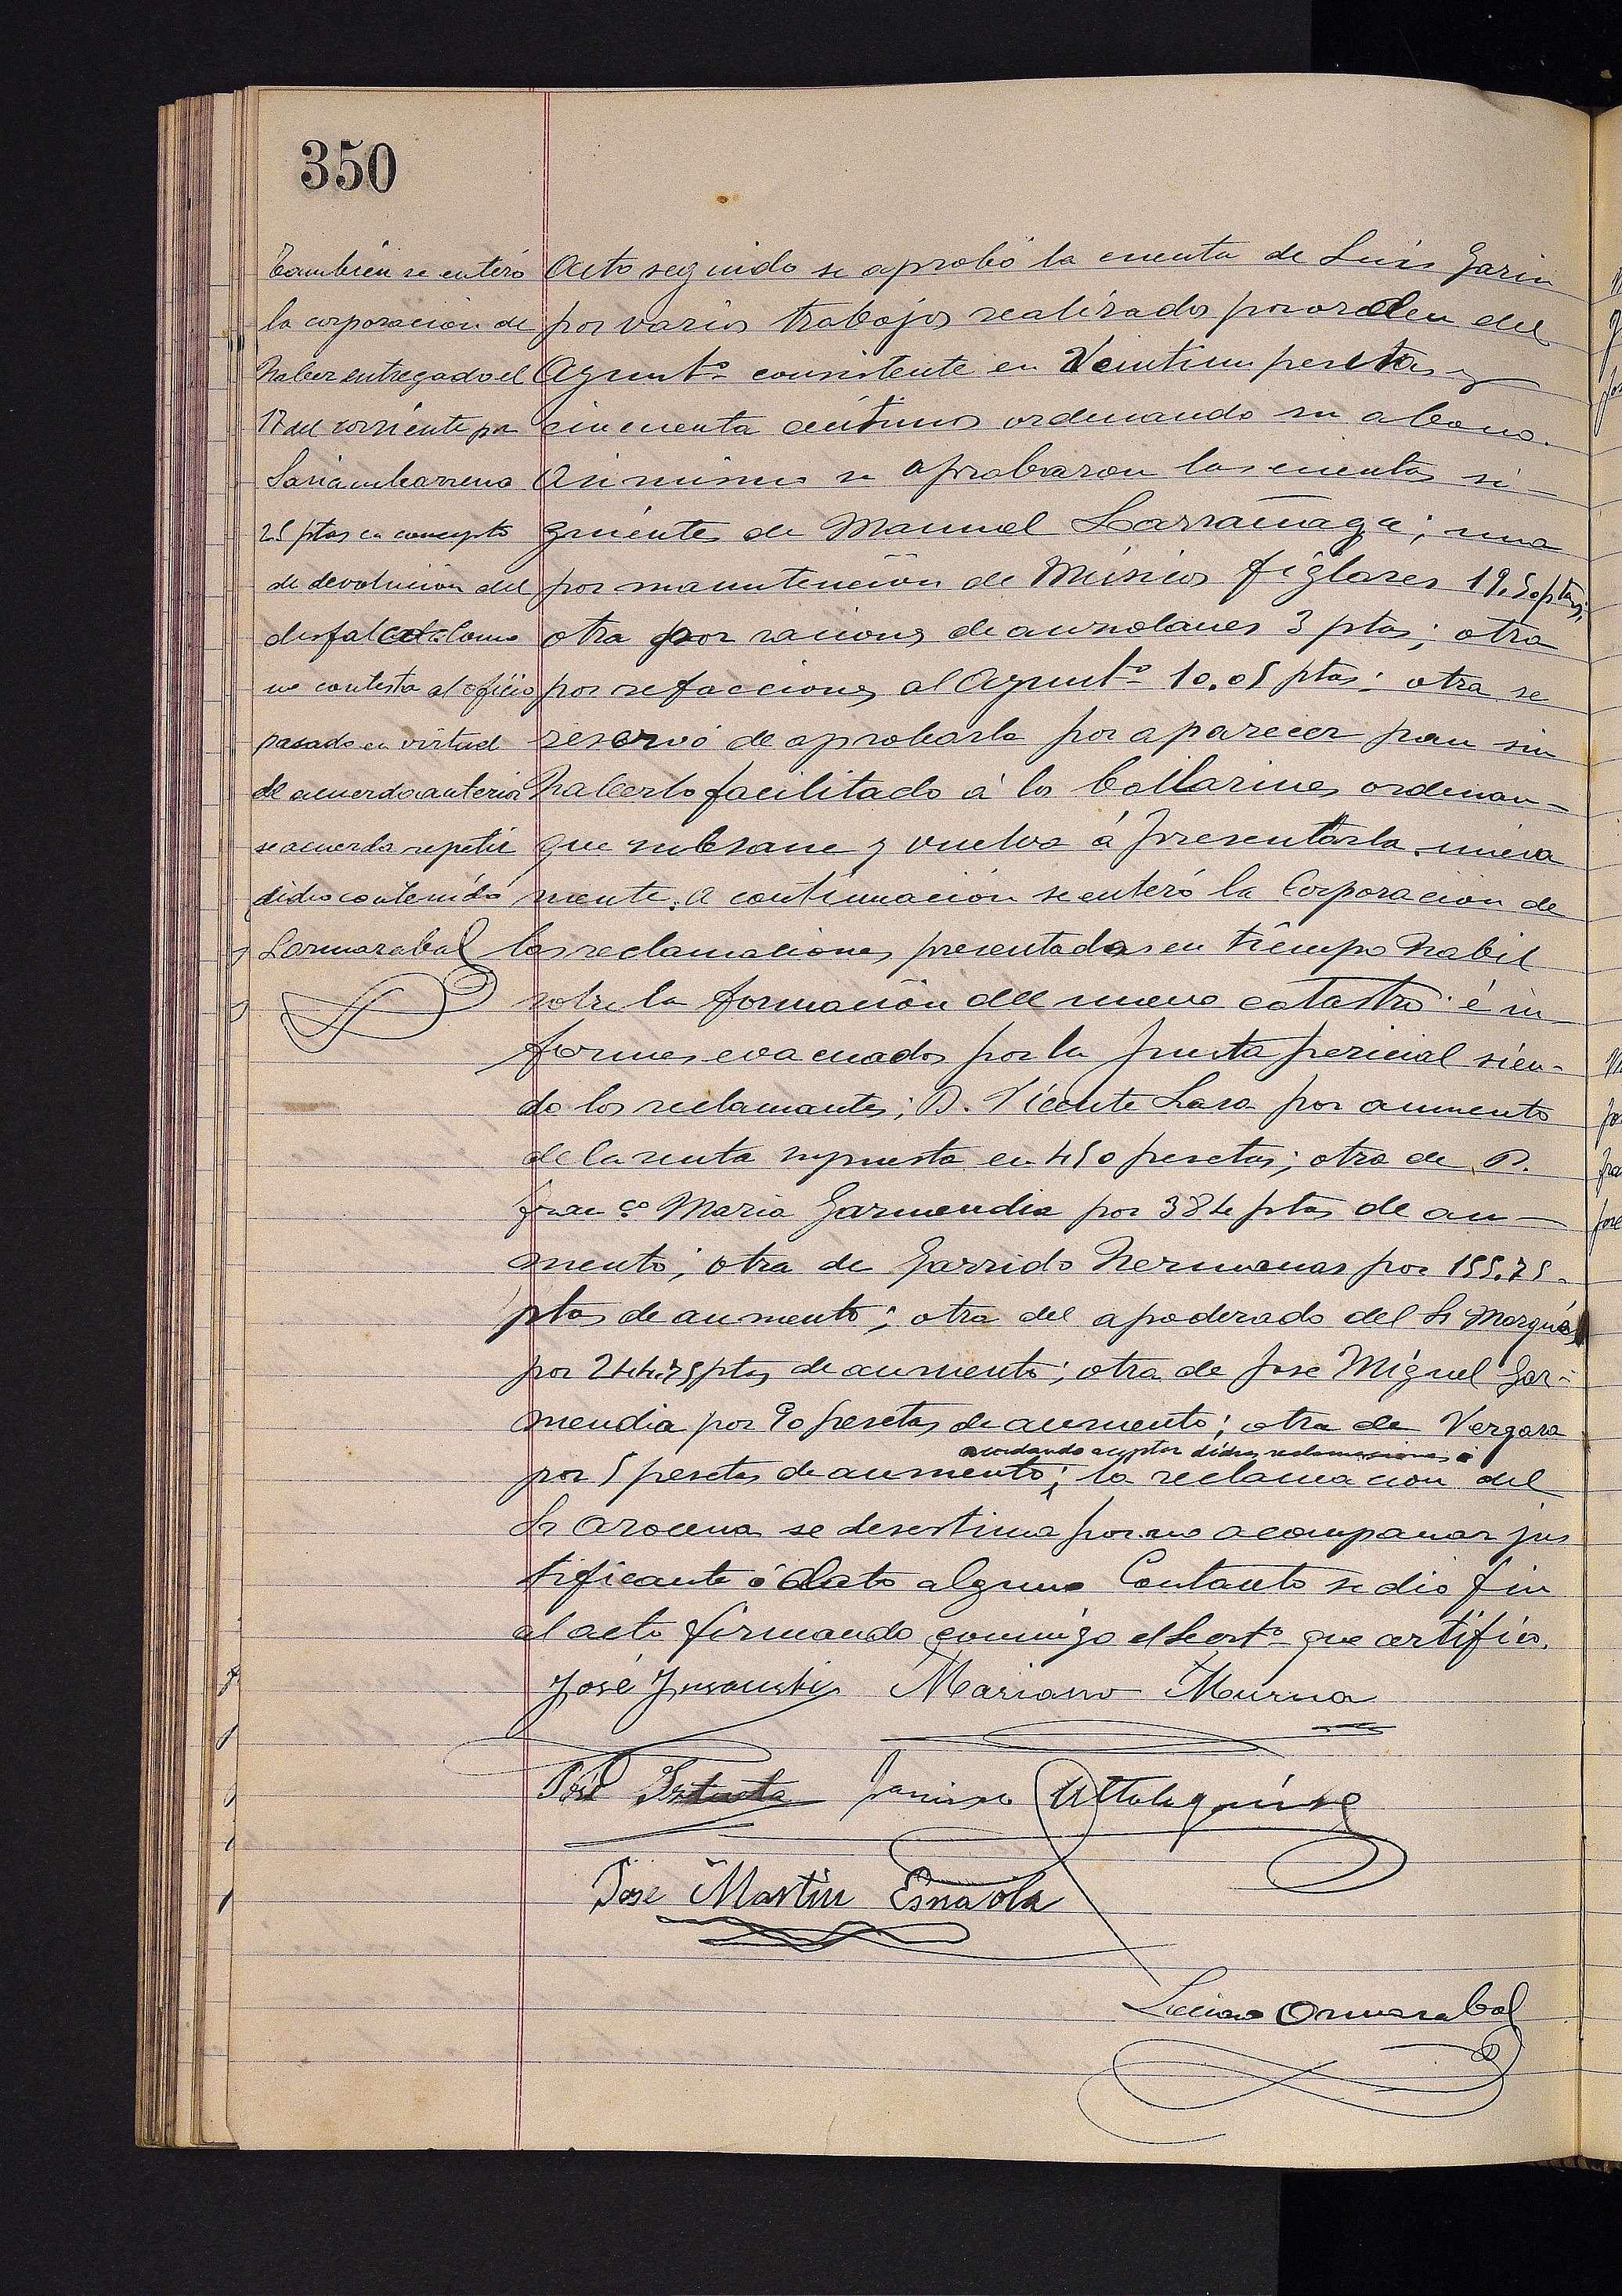 350
También se enteró
la corporación de
haber entregado el
17 del corriente por
25 ptas en concepto
de devolución del
desfalco como
no contesta al oficio
pasado en virtud
de acuerdo anterior
se acuerda repetir
dicho contenido
Lormarabal
Acto seguido se aprobó la cuenta de Luis Garin
por varios trabajos realizados por orden del
Ayuntº consistente en Veintiun pesetas y
cincuenta centimos ordenando su abono.
Asimismo se aprobaron las cuentas si-
guientes de Manuel Larrañaga; una
por manutención de Músicos figlares 19.50 ptas;
otra por raciones de aurrolaries 3 ptas; otra
por refacciones al Ayuntº 10.05 ptas; otra se
reservó de aprobarla por aparecer pan sin
haberlo facilitado á los bailarines ordenan-
que subsane y vuelva á presentarla nueva
mente. A continuación se enteró la Corporación de
las reclamaciones presentadas en tiempo habil
sobre la formación del nuevo catastro é in
formes evacuados por la Junta pericial sien-
do los reclamantes; D. Vicente Lasa por aumento
de la renta supuesta en 450 pesetas; otra de D.
Franco Maria Garmendia por 384 ptas de au-
mento; otra de Garrido Hermanas por 155.75
ptas de aumento; otra del apoderado del Sr Marqués
por 244.75 ptas de aumento; otra de José Miguel Gar-
mendia por 90 pesetas de aumento; otra de Vergara
acordando aceptar dichas reclamaciones é
por 5 pesetas de aumento; la reclamacion del
Sr Arocena se desestima por no acompañar jus
tificante ó dato alguno Contanto se dio fin
al acto firmando conmigo el Secrtº que certifico.
José Insausti Mariano Murua
José Martin Esnaola
Luciano Ormarabal